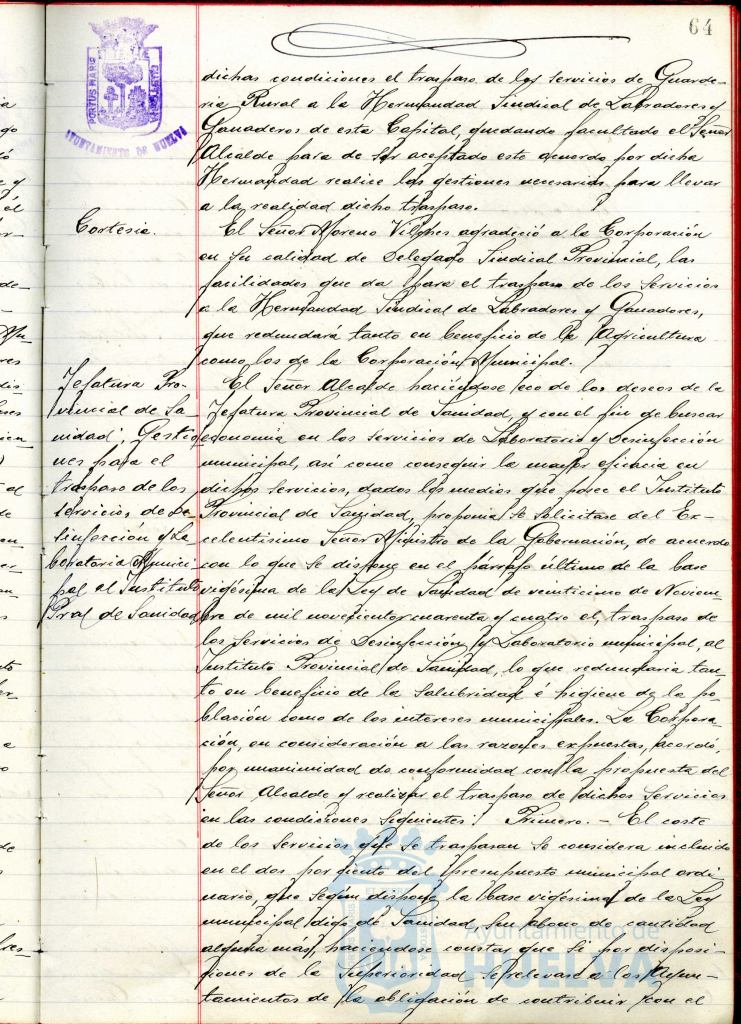 64
PORTUS MARIS
AYUNTAMIENTO DE HUELVA
dichas condiciones el traspaso de los servicios de Guarde-
ria Rural a la Hermandad Sindical de Labradores y
Ganaderos de esta Capital, quedando facultado el Señor
Alcalde para de ser aceptado este acuerdo por dicha
Hermandad realice las gestiones necesarias para llevar
a la realidad dicho traspaso.
Cortesia.
El Señor Moreno Vilches agradeció a la Corporación
en su calidad de Delegado Sindical Provincial, las
facilidades que da para el traspaso de los Servicios
a la Hermandad Sindical de Labradores y Ganaderos,
que redundará tanto en beneficio de la Agricultura
como los de la Corporación Municipal.
Jefatura Pro-
vincial de Sa-
nidad, Gestio
nes para el
traspaso de los
servicios de De-
sinfección y La-
boratorio Munici-
pal al Instituto
Prval de Sanidad
El Señor Alcalde haciéndose eco de los deseos de la
Jefatura Provincial de Sanidad, y con el fin de buscar
economia en los servicios de Laboratorio y Desinfección
municipal, así como conseguir la mayor eficacia en
dichos servicios, dados los medios que posee el Instituto
Provincial de Sanidad, proponia se solicitase del Ex-
celentisimo Señor Ministro de la Gobernación, de acuerdo
con lo que se dispone en el párrafo último de la base
vigésima de la Ley de Sanidad de veinticinco de Noviem-
bre de mil novecientos cuarenta y cuatro el, traspaso de
los Servicios de Desinfección y Laboratorio municipal, al
Instituto Provincial de Sanidad, lo que redundaria tan-
to en beneficio de la salubridad é higiene de la po-
blación como de los intereses municipales. La Corpora-
ción, en consideración a las razones expuestas, acordó,
por unanimidad de conformidad con la propuesta del
Señor Alcalde y realizar el traspaso de dichos Servicios
en las condiciones siguientes: Primero.- El coste
de los Servicios que se traspasan se considera incluido
en el dos por ciento del presupuesto municipal ordi
nario, que según dispone la base vigésima de la Ley
municipal digo de Sanidad, se abone de cantidad
alguna más, haciéndose constar que si por disposi-
ciones de la Superioridad se relevase a los Ayun-
tamientos de la obligación de contribuir con el
Ayuntamiento de
HUELVA